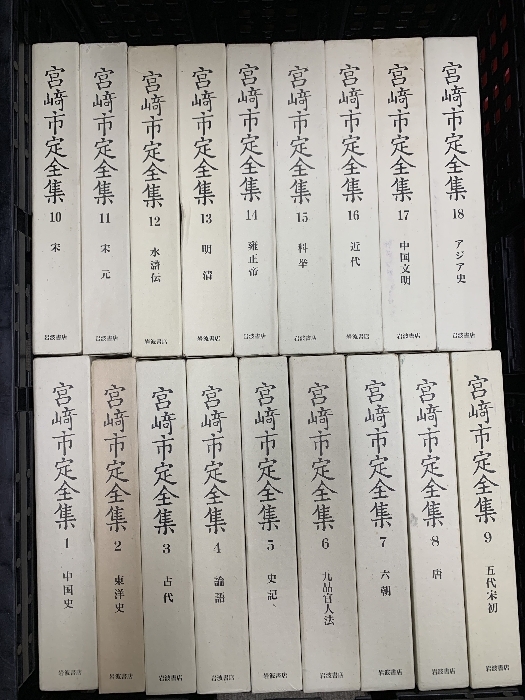 宮﨑市定全集
10
宋
岩波書店
宮﨑市定全集
11
宋 元
岩波書店
宮﨑市定全集
12
水滸伝
岩波書店
宮﨑市定全集
13
明 清
岩波書店
宮﨑市定全集
14
雍正帝
岩波書店
宮﨑市定全集
15
科挙
岩波書店
宮﨑市定全集
16
近代
岩波書店
宮﨑市定全集
17
中国文明
岩波書店
宮﨑市定全集
18
アジア史
岩波書店
宮﨑市定全集
1
中国史
岩波書店
宮﨑市定全集
2
東洋史
岩波書店
宮﨑市定全集
3
古代
岩波書店
宮﨑市定全集
4
論語
岩波書店
宮﨑市定全集
5
史記
岩波書店
宮﨑市定全集
6
九品官人法
岩波書店
宮﨑市定全集
7
六朝
岩波書店
宮﨑市定全集
8
唐
岩波書店
宮﨑市定全集
9
五代宋初
岩波書店